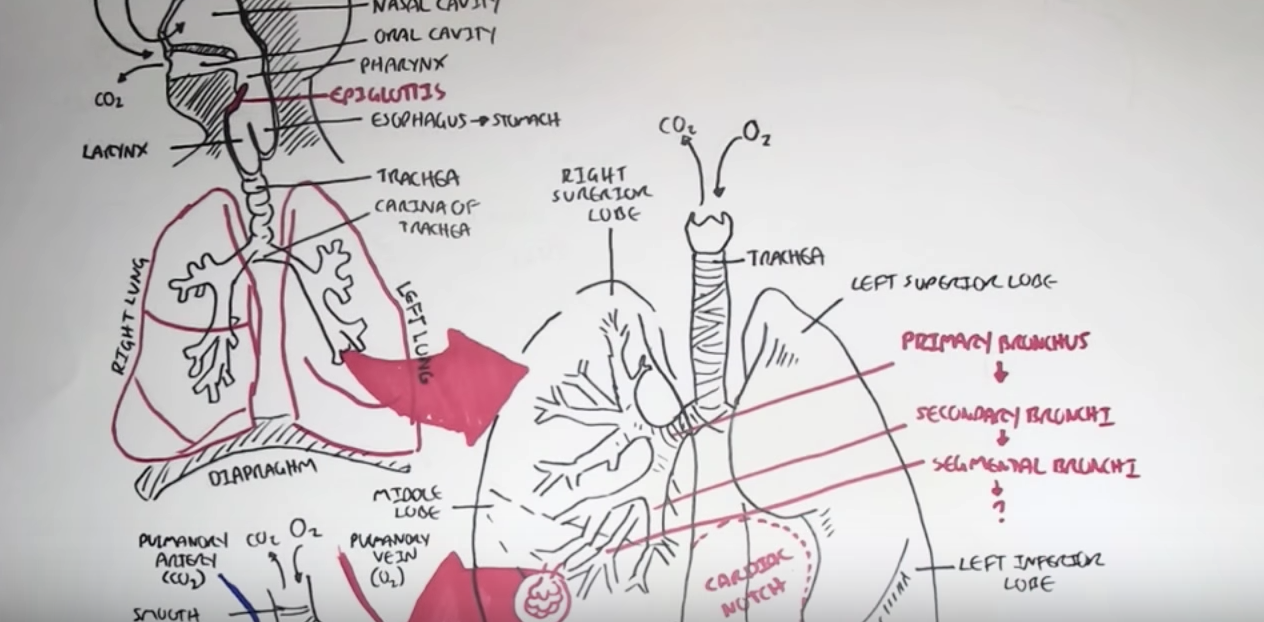 NASAL CAVITY
ORAL CAVITY
PHARYNX
CO2
EPIGLOTTIS
ESOPHAGUS → STOMACH
LARYNX
TRACHEA
CARINA OF
TRACHEA
RIGHT LUNG
LEFT LUNG
DIAPRAGHM
CO2
O2
RIGHT
SUPERIOR
LOBE
TRACHEA
LEFT SUPERIOR LOBE
PRIMARY BRONCHUS
SECONDARY BRONCHI
SEGMENTAL BRONCHI
?
MIDDLE
LOBE
CARDIAC
NOTCH
LEFT INFERIOR
LOBE
PULMANORY
ARTERY
(CO2)
CO2
O2
PULMANORY
VEIN
(O2)
SMOOTH